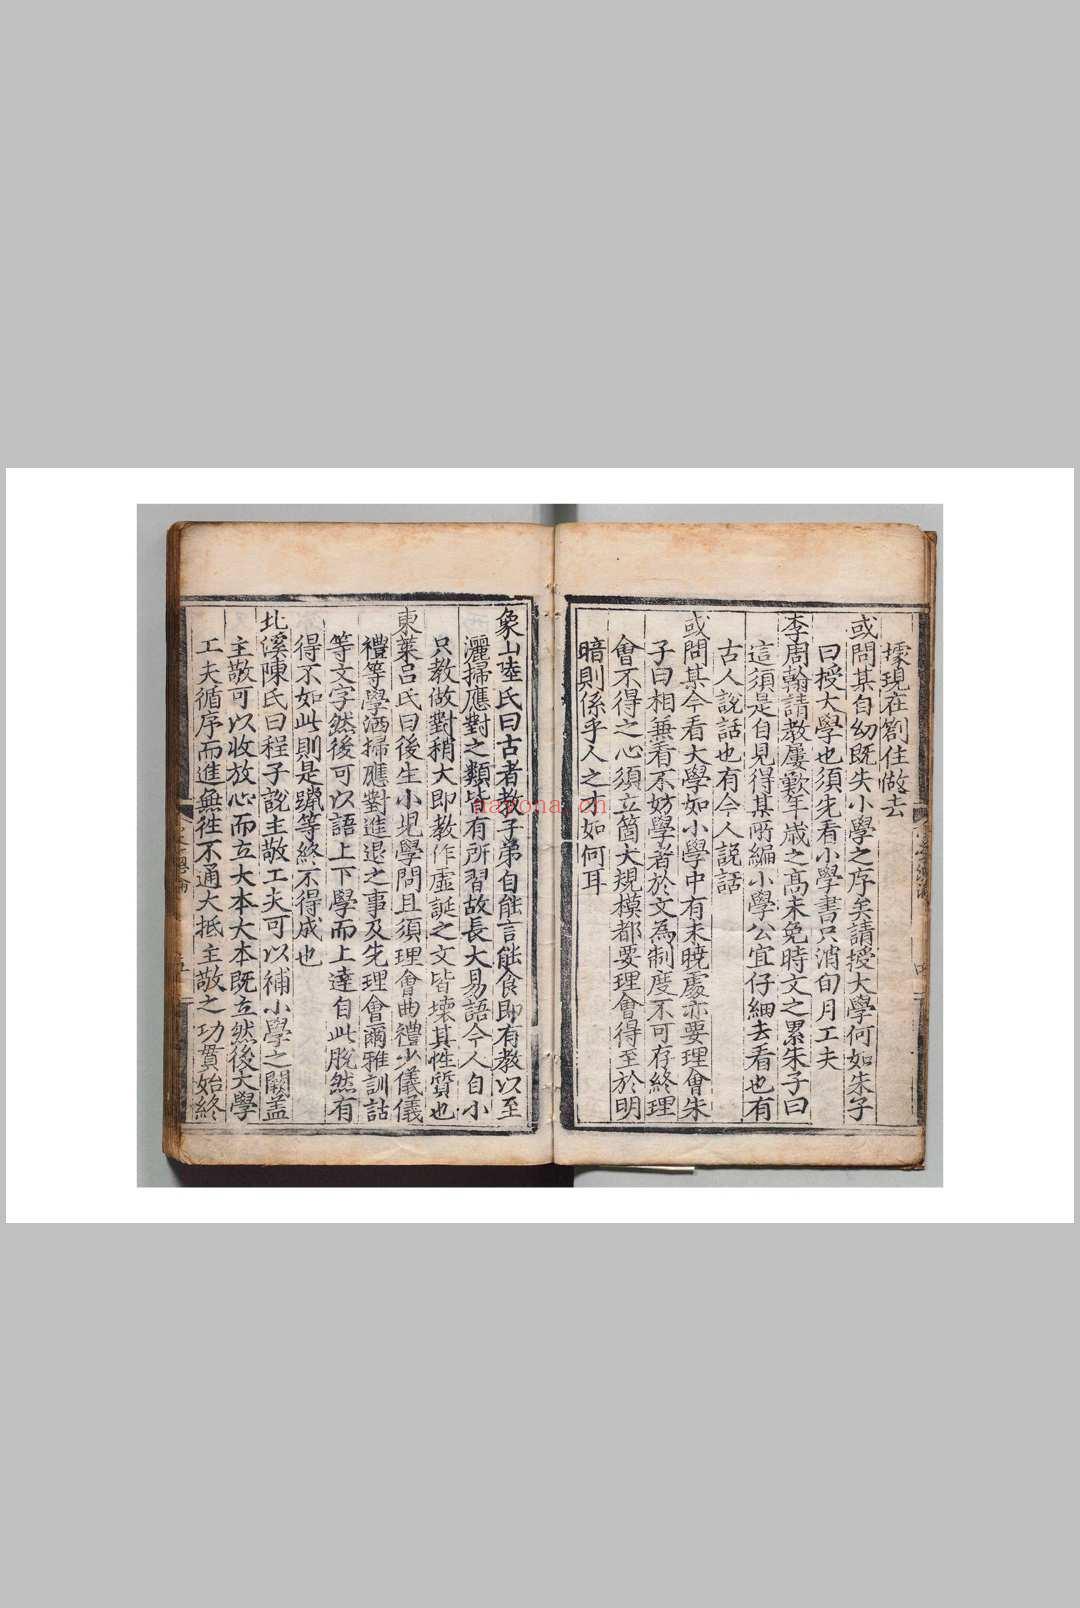 據現在劄住做去
或問某自幼既失小學之序矣請授大學何如朱子
曰授大學也須先看小學書只消旬月工夫
李周翰請教屢歎年歳之髙未免時文之累朱子曰
這須是自見得某所編小學公宜仔細去看也有
古人說話也有今人説話
或問某今看大學如小學中有未曉處亦要理會朱
子曰相兼看不妨學者於文為制度不可存終理
會不得之心須立箇大規模都要理會得至於明
暗則係乎人之才如何耳
象山陸氏曰古者教子弟自能言能食即有教以至
灑掃應對之類皆有所習故長大易語今人自小
只教做對稍大即教作虛誕之文皆壊其性質也
東萊吕氏曰後生小児學問且須理會曲禮少儀儀
禮等學洒掃應對進退之事及先理會爾雅訓詁
等文字然後可以語上下學而上達自此脱然有
得不如此則是躐等終不得成也
北溪陳氏曰程子說主敬工夫可以補小學之闕盖
主敬可以收放心而立大本大本既立然後大學
工夫循序而進無徃不通大抵主敬之功貫始終
nayona.cn